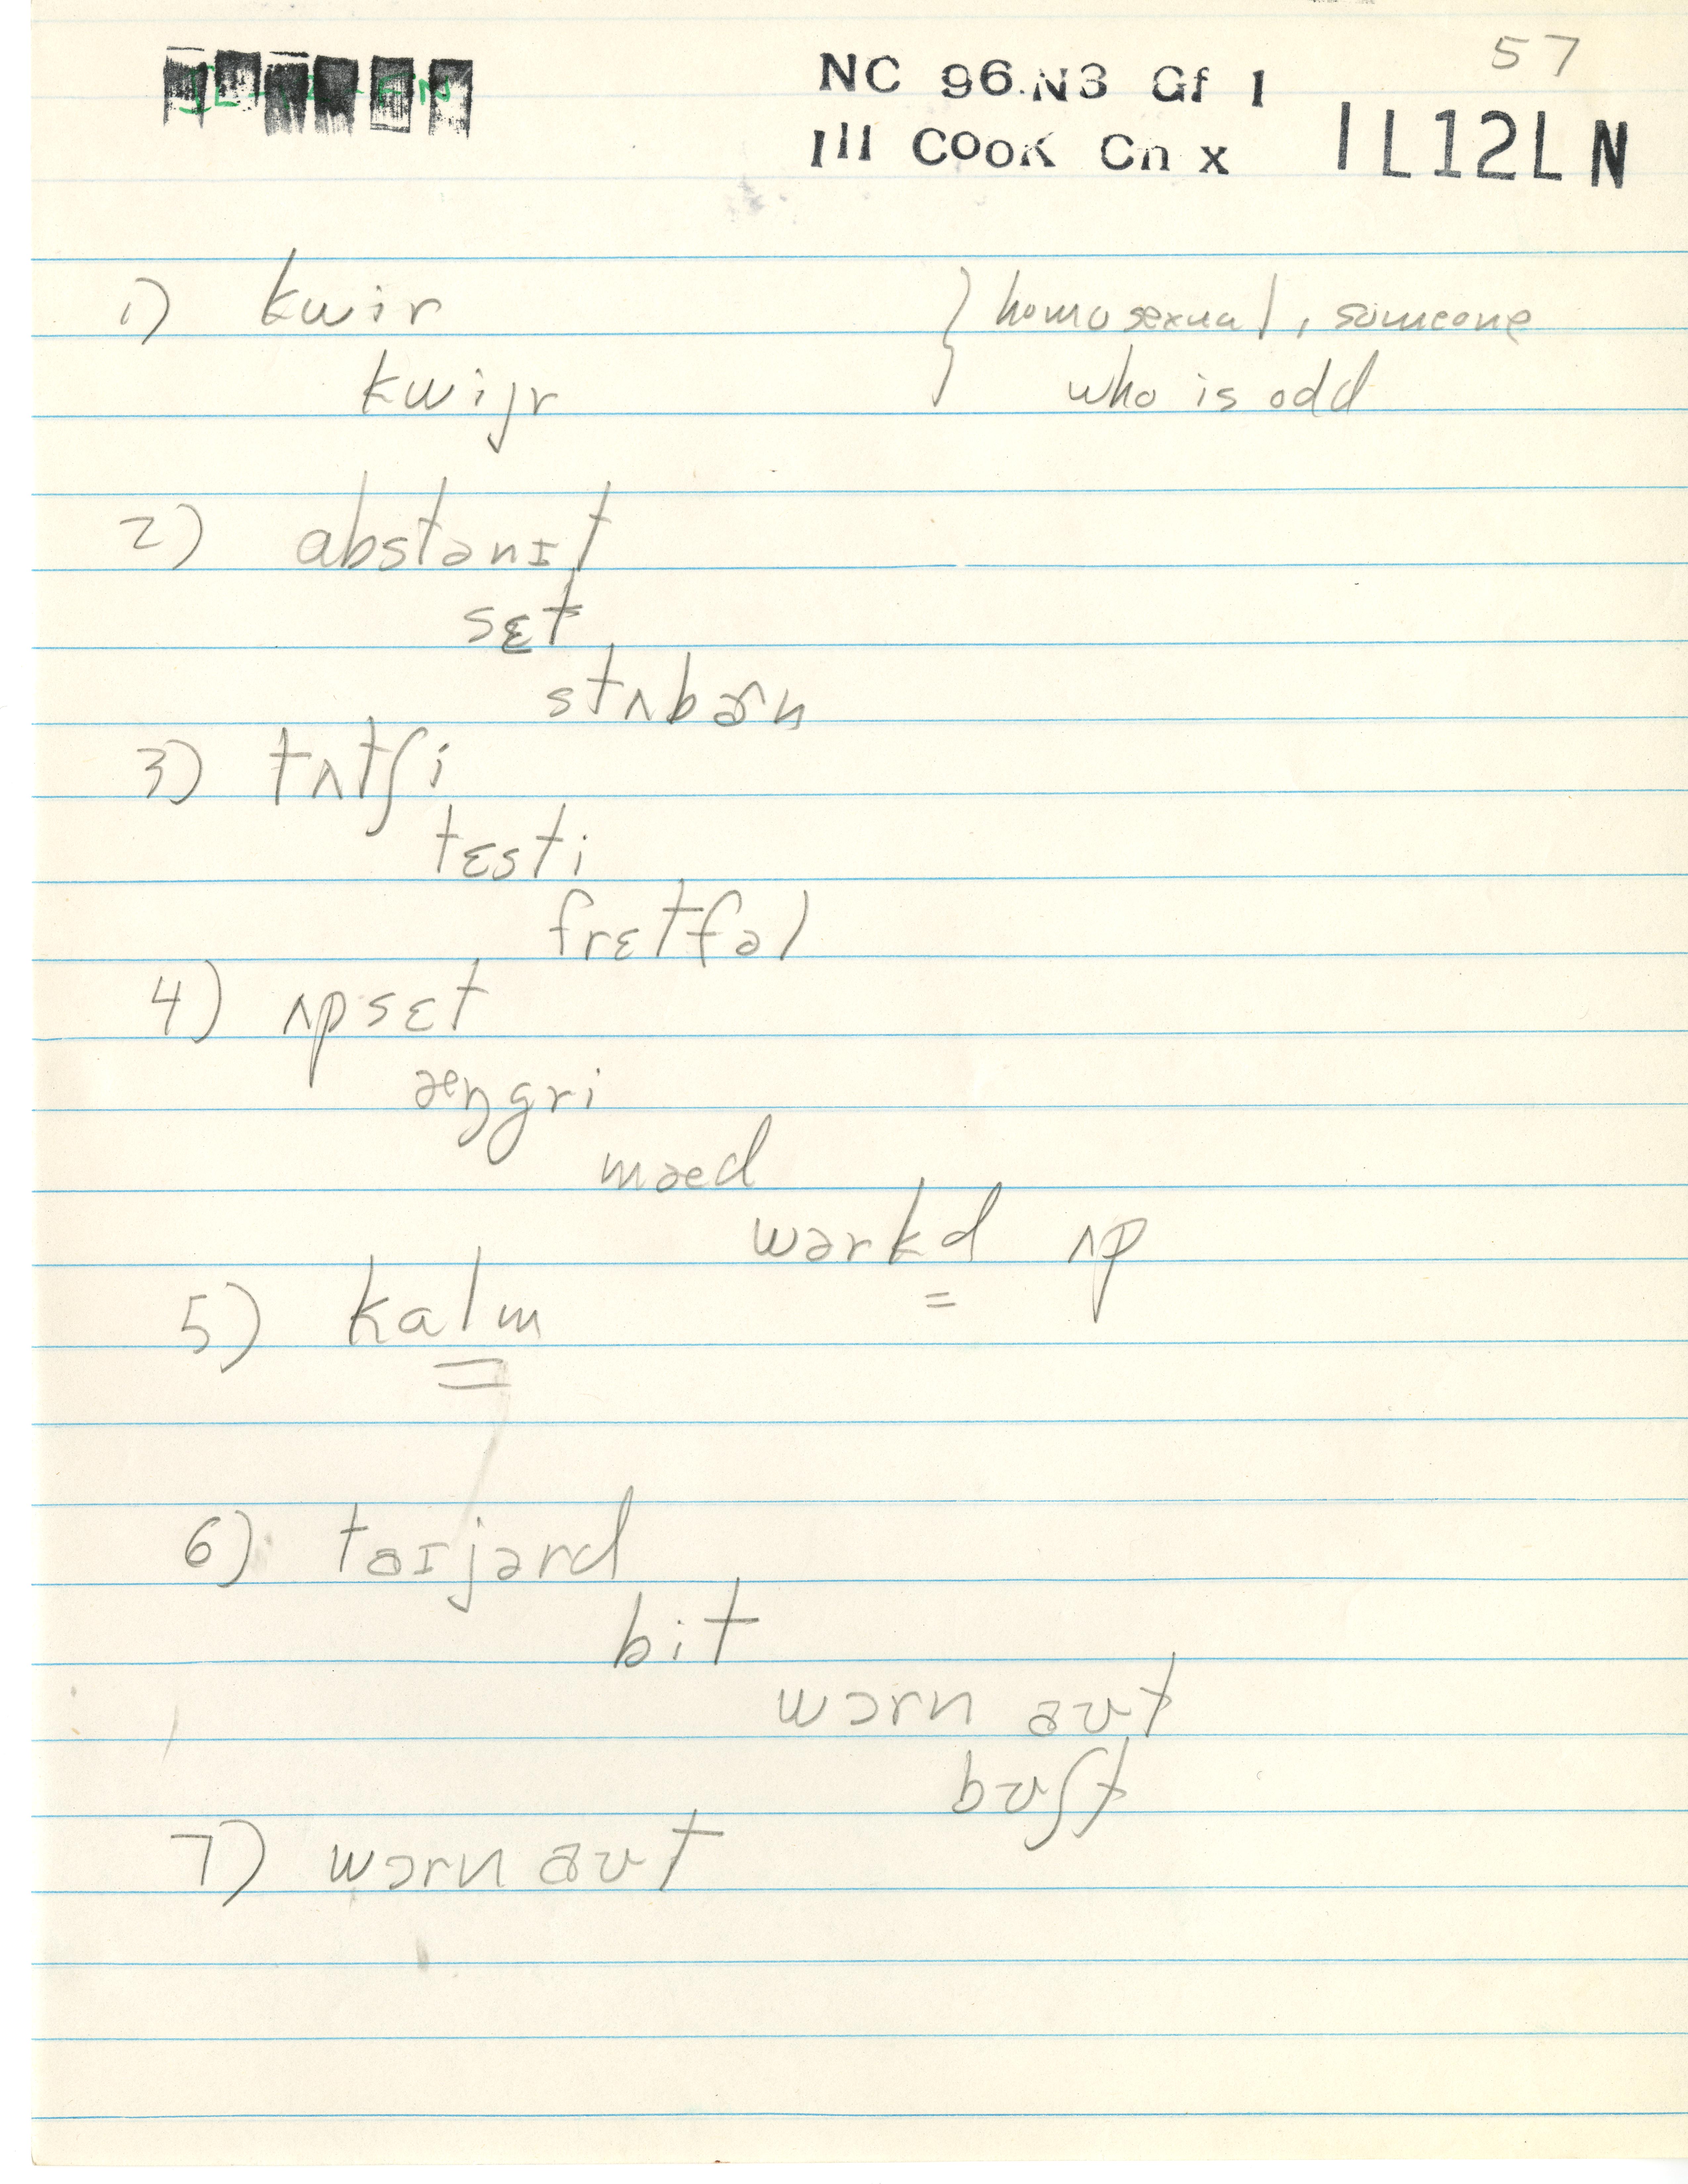 57
NC 96.N3 Gf 1
Ill Cook Cn x IL12LN
1) kwir } homosexual, someone
kwijr who is odd
2) abstənɪt
sɛt
stʌbərn
3) tʌtʃi
tɛsti
frɛtfəl
4) ʌpsɛt
æŋgri
mæd
wərkd ʌp
5) kalm
6) taɪjərd
bit
wɔrn aʊt
bʊʃt
7) wɔrn aʊt